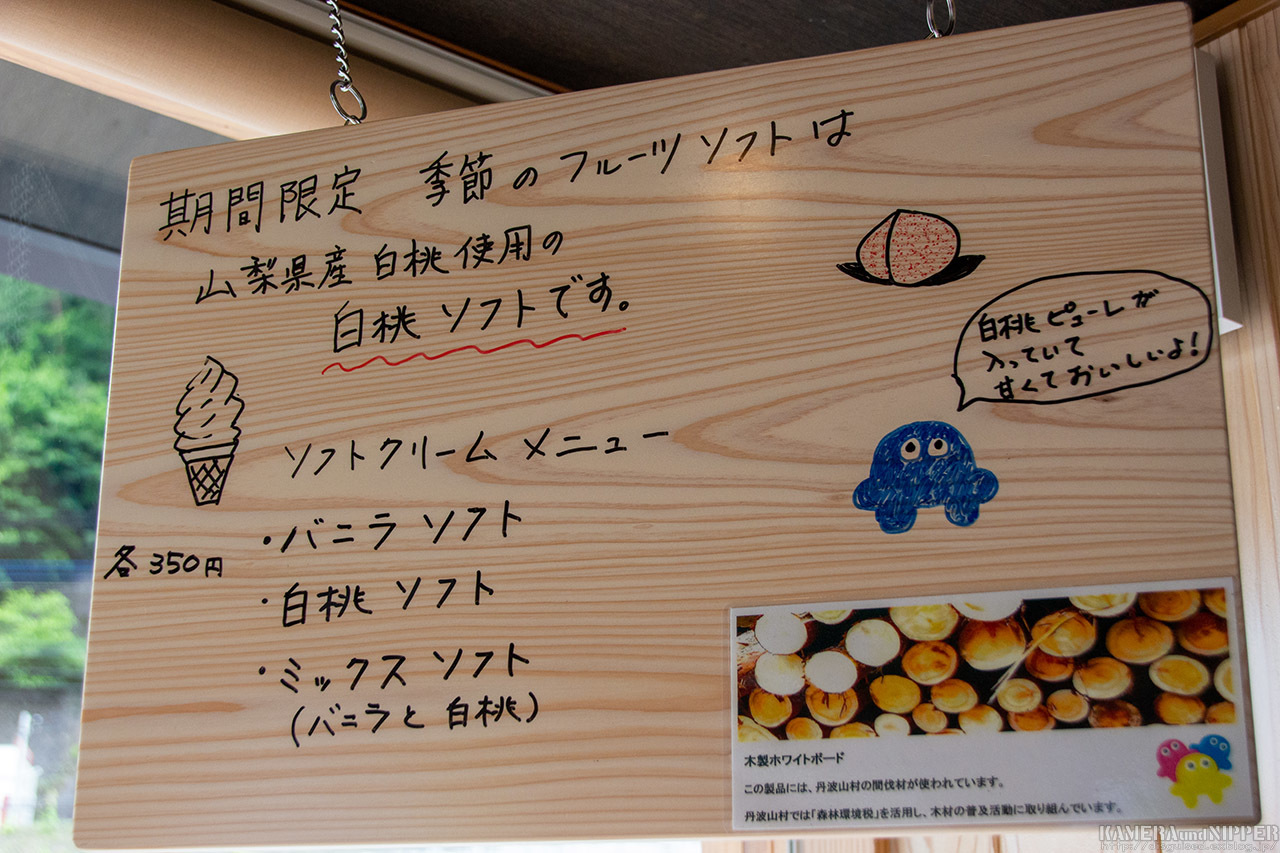 期間限定 季節のフルーツソフトは
山梨県産白桃使用の
白桃ソフトです。
白桃ピューレが
入っていて
甘くておいしいよ!
ソフトクリームメニュー
各350円
・バニラソフト
・白桃ソフト
・ミックスソフト
(バニラと白桃)
木製ホワイトボード
この製品には、丹波山村の間伐材が使われています。
丹波山村では「森林環境税」を活用し、木材の普及活動に取り組んでいます。
KAMERAundNIPPER